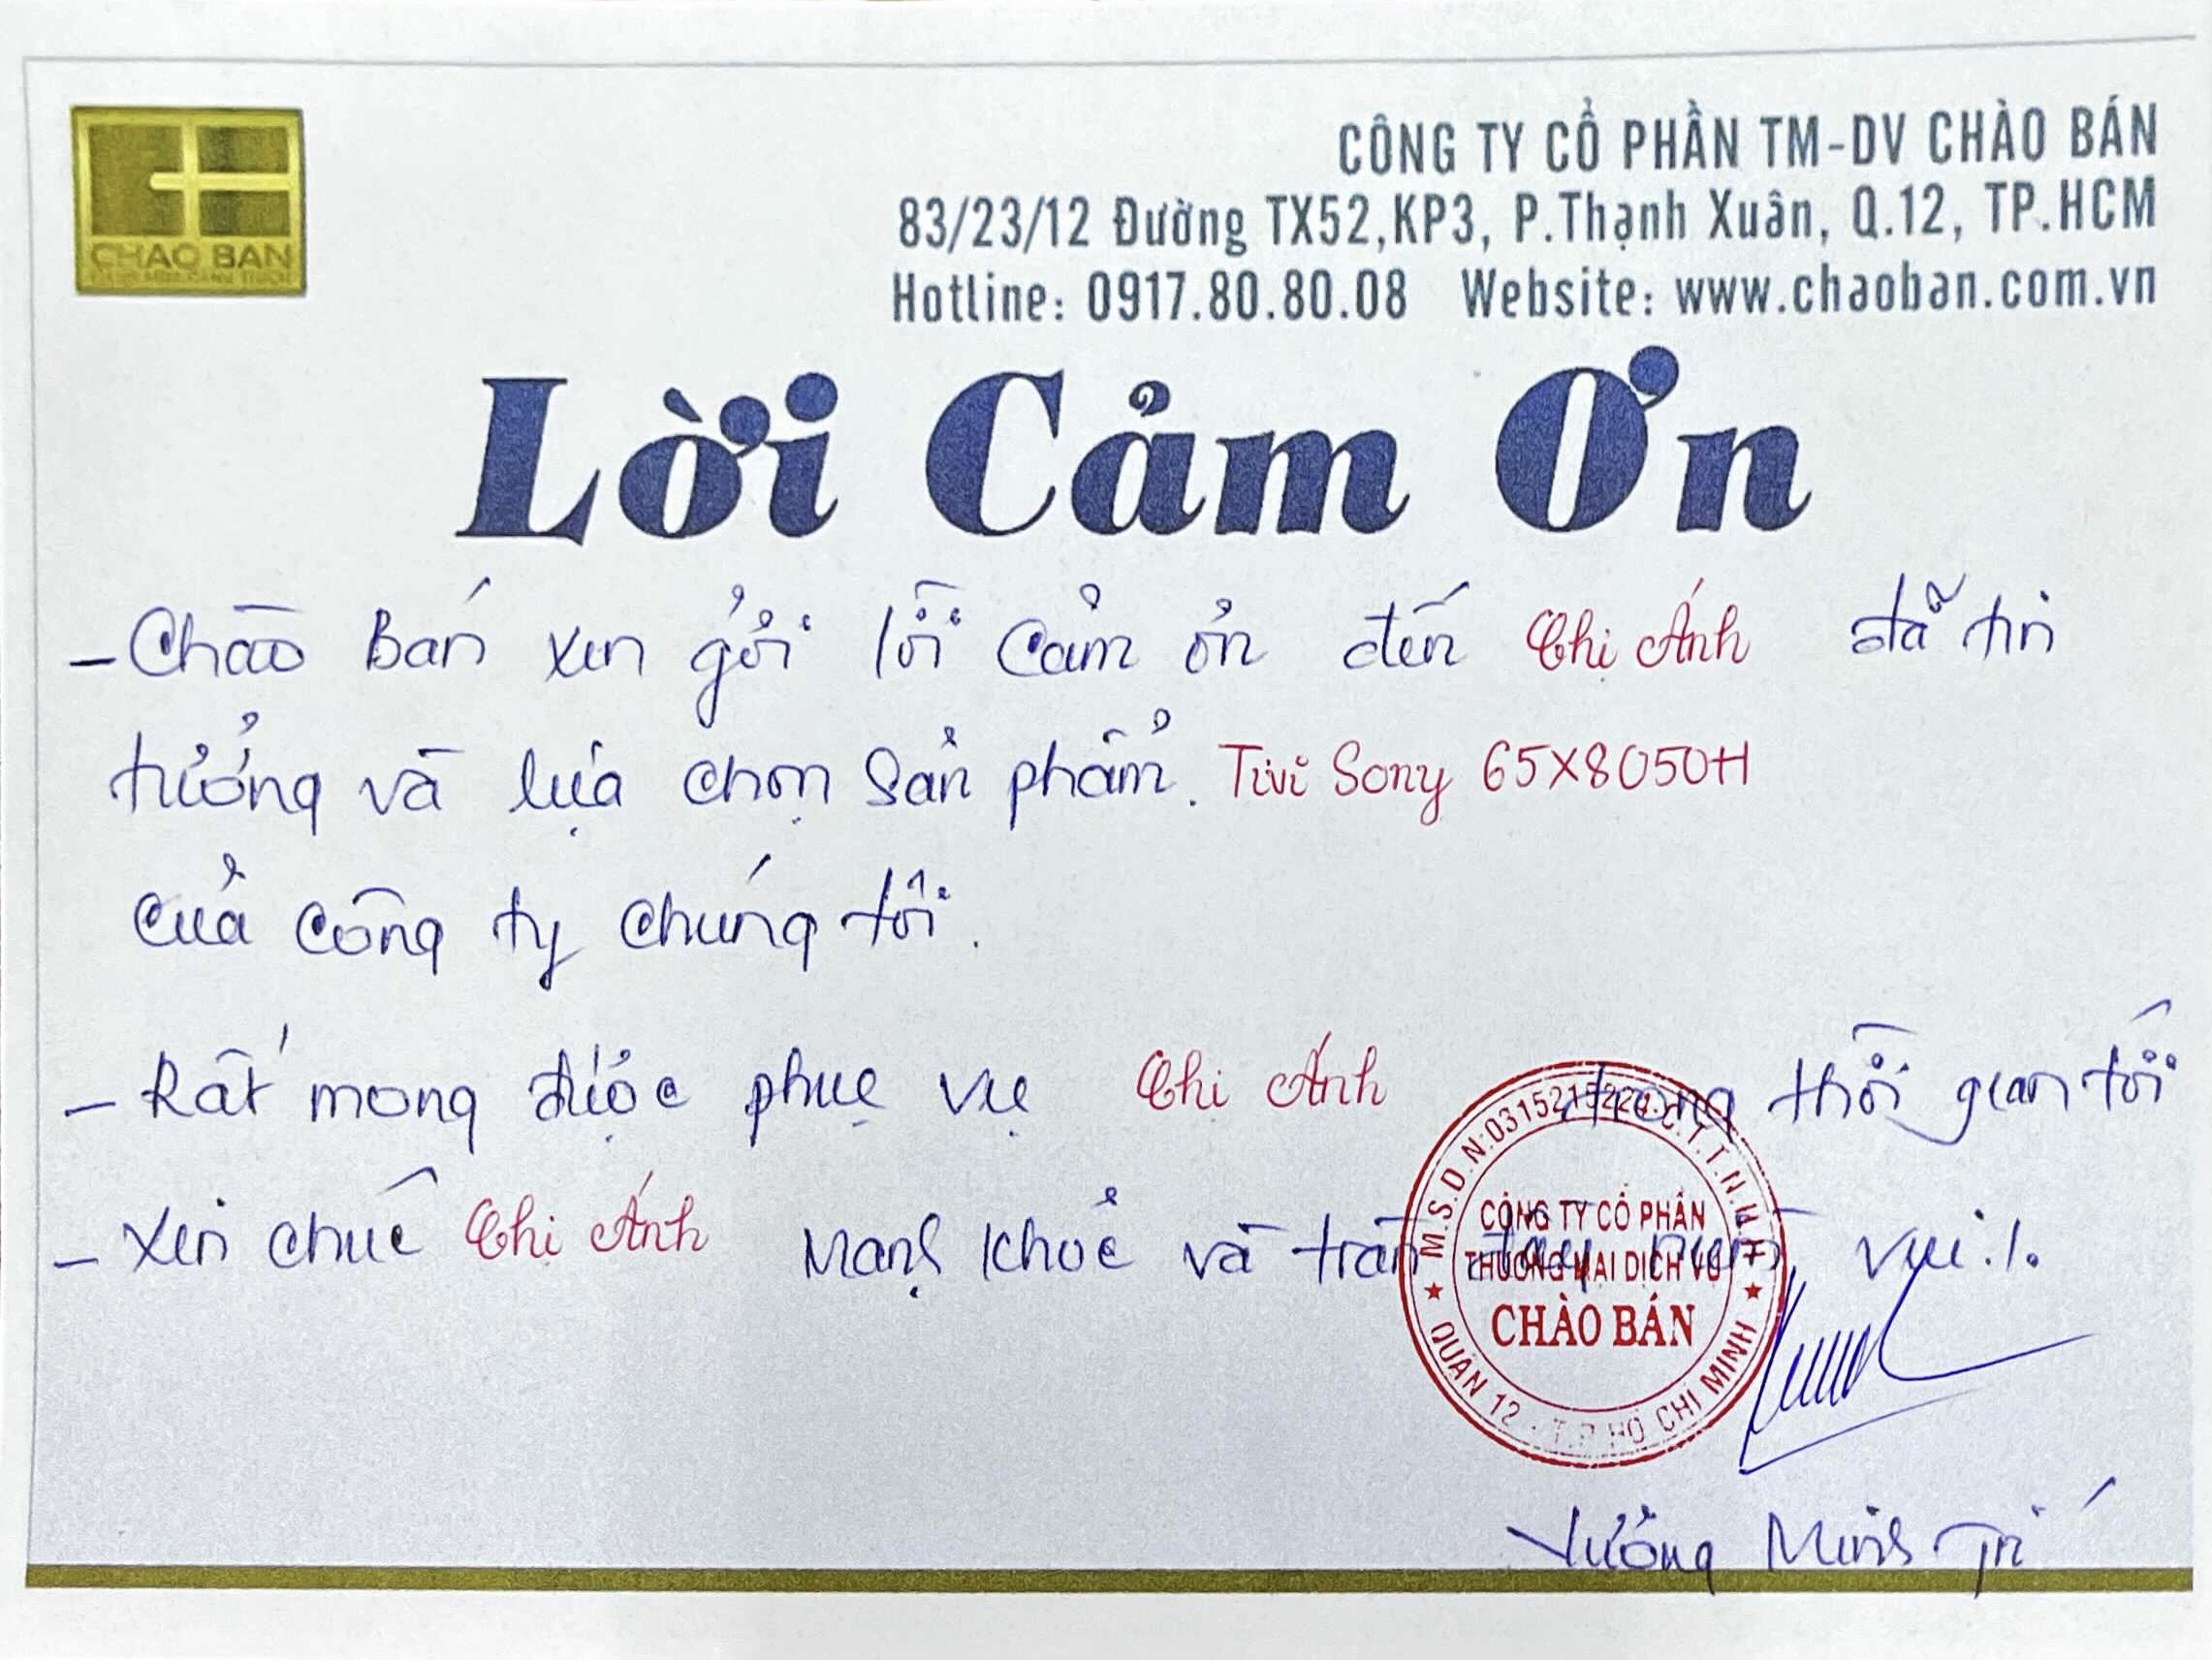 CHAO BAN
CÔNG TY CỔ PHẦN TM-DV CHÀO BÁN
83/23/12 Đường TX52,KP3, P.Thạnh Xuân, Q.12, TP.HCM
Hotline: 0917.80.80.08 Website: www.chaoban.com.vn
Lời Cảm Ơn
- Chào Bán xin gởi lời cảm ơn đến Chị Ánh đã tin
tưởng và lựa chọn sản phẩm. Tivi Sony 65X8050H
của công ty chúng tôi.
- Rất mong được phục vụ Chị Ánh trong thời gian tới
- Xin chúc Chị Ánh mạnh khoẻ và tràn đầy niềm vui./.
M.S.D.N:0315215224-C.T.T.N.H.H
CÔNG TY CỔ PHẦN
THƯƠNG MẠI DỊCH VỤ
CHÀO BÁN
QUẬN 12 - T.P HỒ CHÍ MINH
Vương Minh Trí